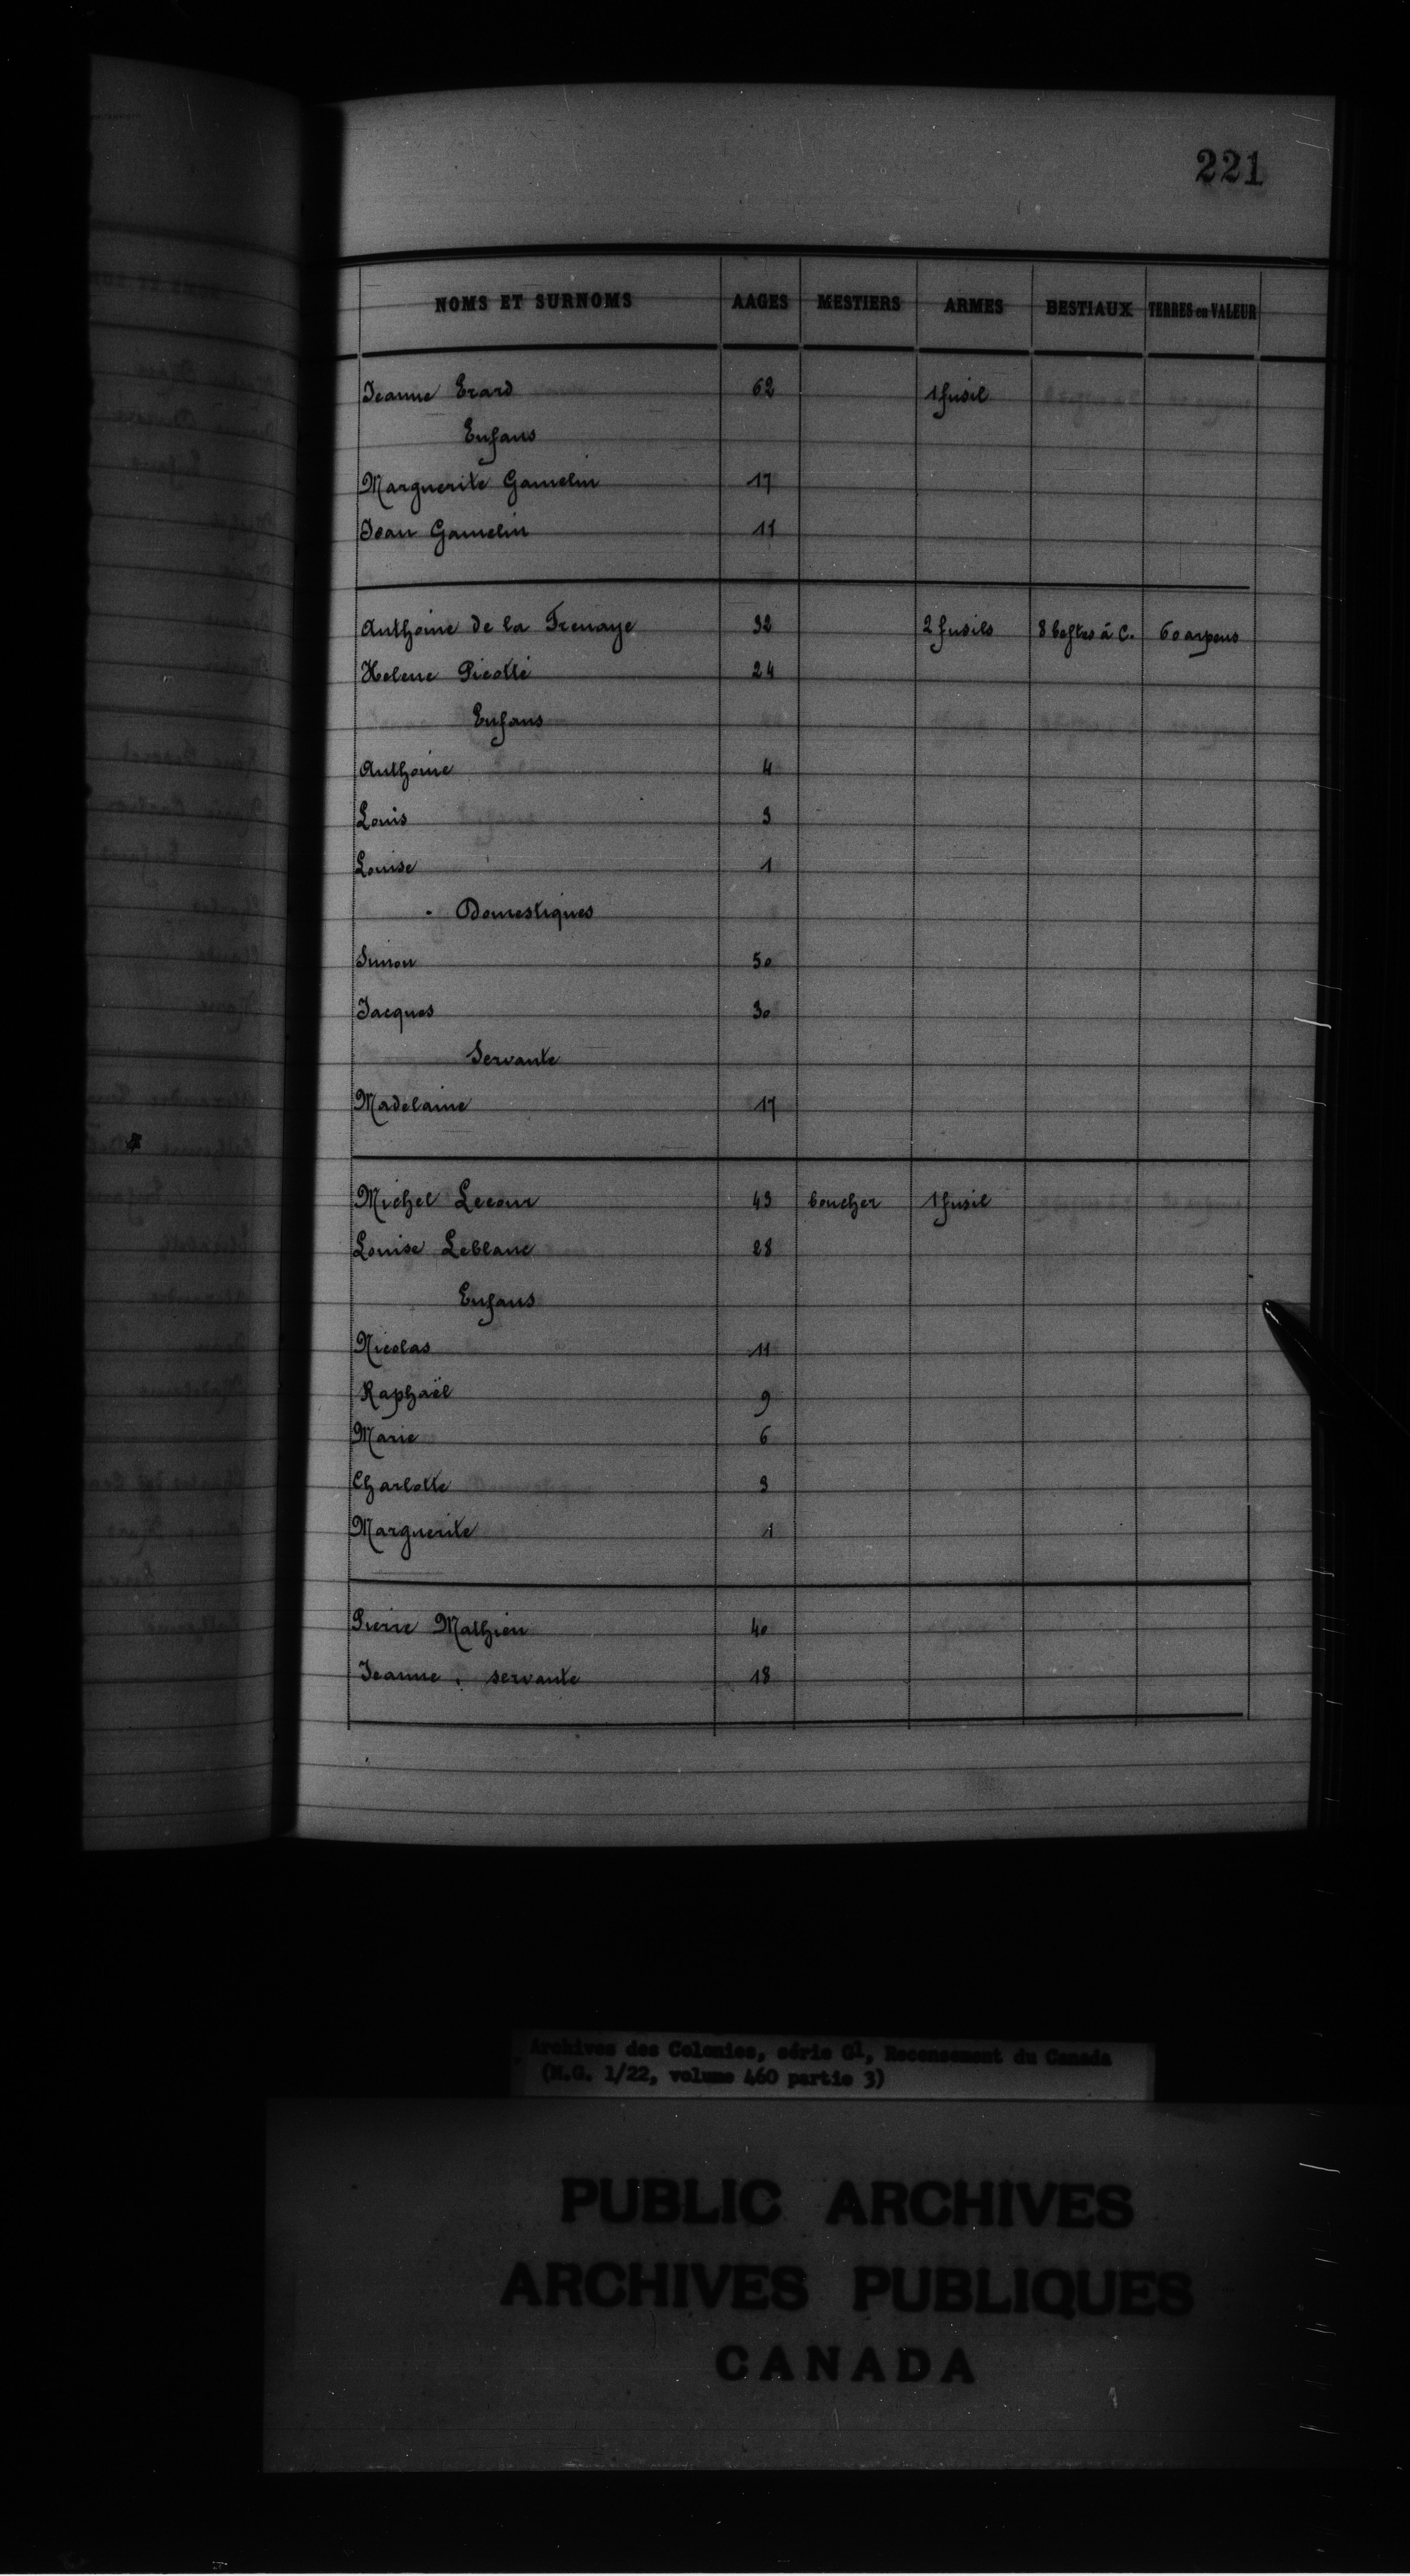 221
NOMS ET SURNOMS AAGES MESTIERS ARMES BESTIAUX TERRES en VALEUR
Jeanne Erard 62 1 fusil
Enfans
Marguerite Gamelin 17
Jean Gamelin 11
Anthoine de la Frenaye 32 2 fusils 8 bestes à C. 60 arpens
Helene Picotté 24
Enfans
Anthoine 4
Louis 3
Louise 1
Domestiques
Simon 50
Jacques 30
Servante
Madelaine 17
Michel Lecour 43 boucher 1 fusil
Louise Leblanc 28
Enfans
Nicolas 11
Raphaël 9
Marie 6
Charlotte 3
Marguerite 1
Pierre Mathieu 40
Jeanne, servante 18
Archives des Colonies, série G1, Recensement du Canada
(M.G. 1/22, volume 460 partie 3)
PUBLIC ARCHIVES
ARCHIVES PUBLIQUES
CANADA